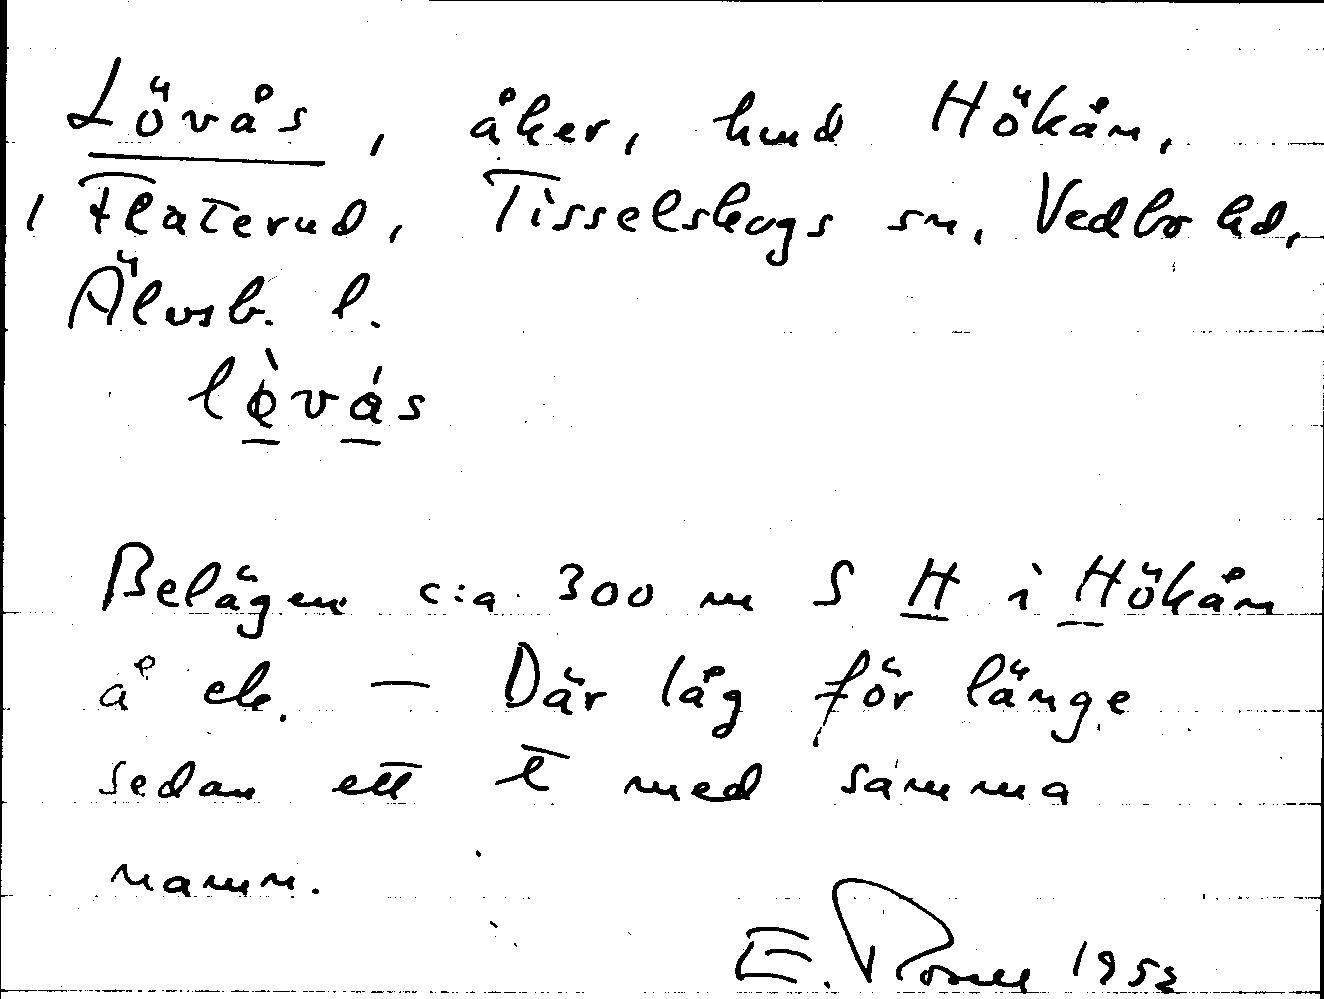 Lövås, åker, hmd Hökån,
1 Flaterud, Tisselskogs sn, Vedbo hd,
Älvsb. l.
lòvás
Belägen c:a 300 m S H i Hökån
å ek. — Där låg för länge
sedan ett t med samma
namn.
E. 1952